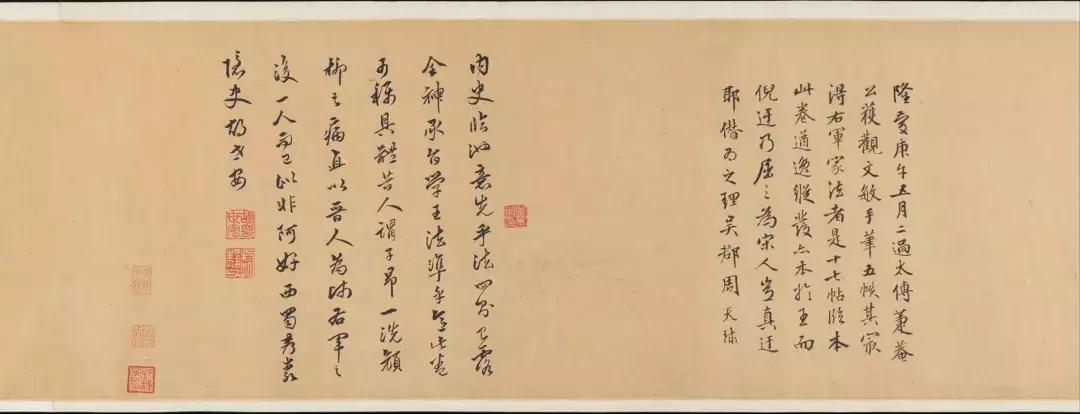 隆慶庚午五月二過太傅蒹葭
公獲觀文敏手筆五帙其最
得右軍家法者是十七帖臨本
此卷遒逸縱發亦本於王而
倪迂乃屈之為宋人豈真迂
耶僭為之理吳郡周天球
內史臨池意先乎法
全神承旨學王法準乎意此卷
可稱具體昔人謂子昂一洗顏
柳之病直以晉人為師右軍之
後一人而已此非阿好西蜀
憶史胡世安